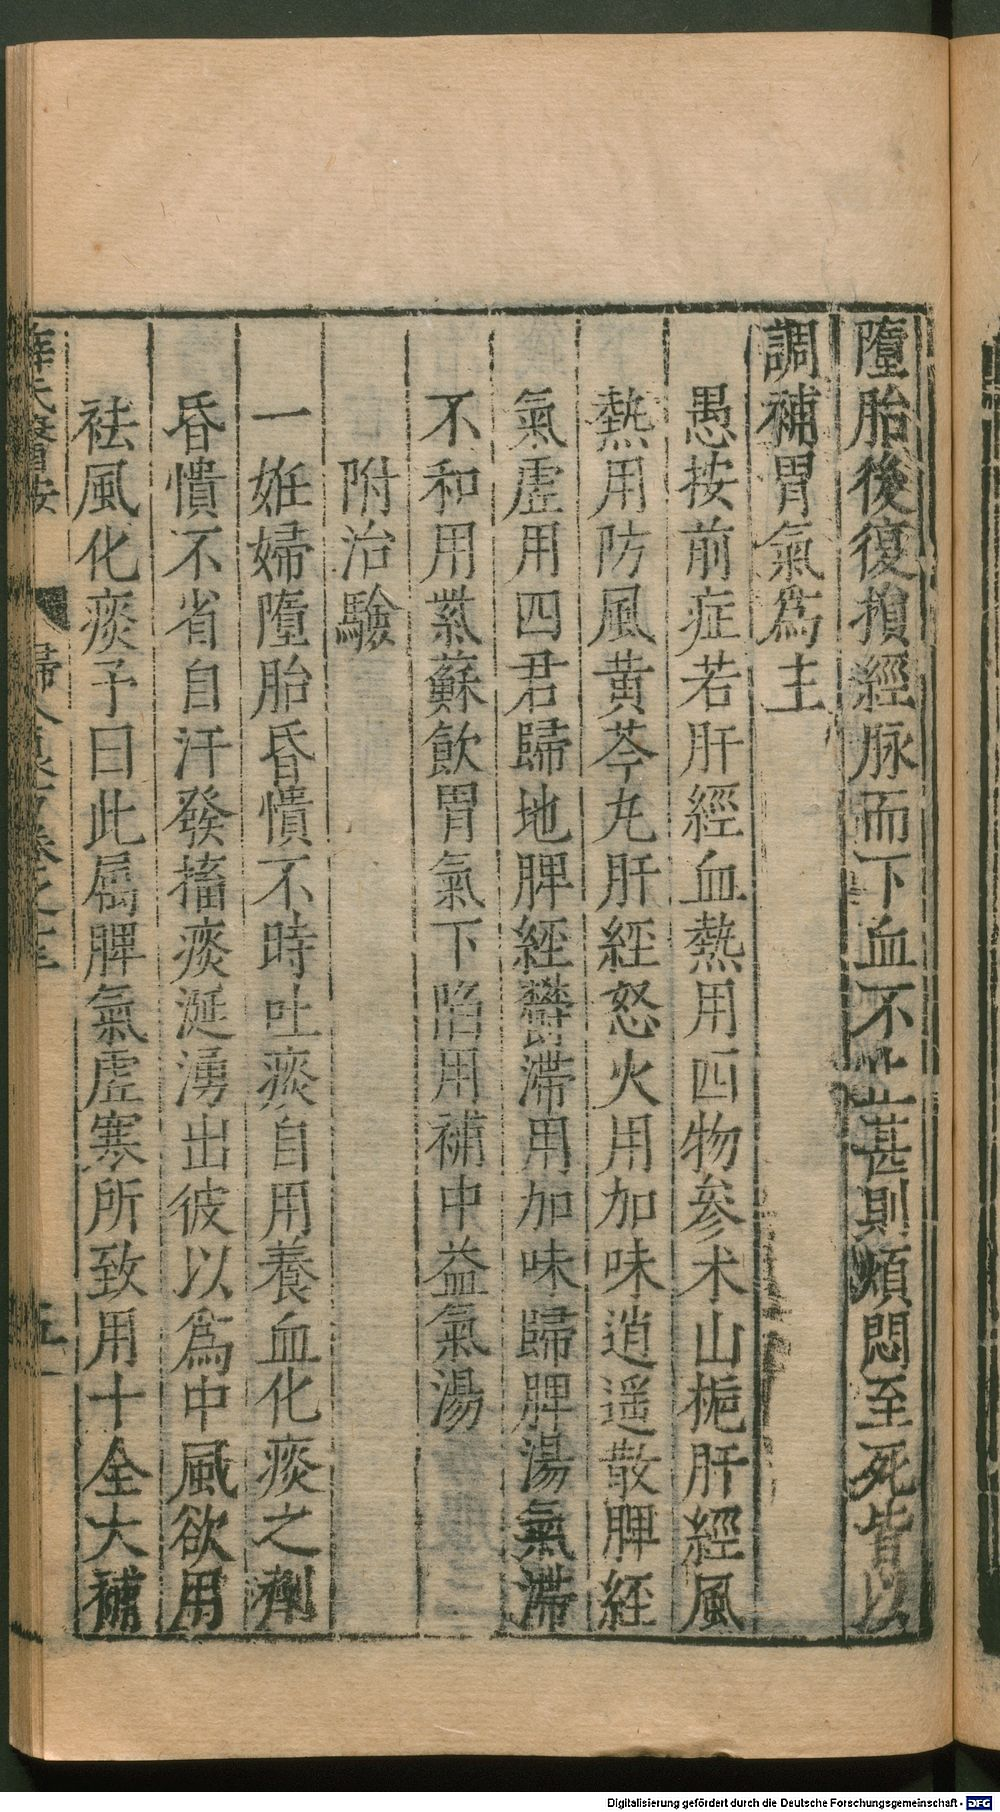 墮胎後復損經脉而下血不止甚則煩悶至死皆以
調補胃氣爲主
愚按前症若肝經血熱用四物參术山梔肝經風
熱用防風黄芩丸肝經怒火用加味逍遥散脾經
氣虛用四君歸地脾經欝滯用加味歸脾湯氣滯
不和用紫蘇飲胃氣下陷用補中益氣湯
附治驗
一妊婦墮胎昏憒不時吐痰自用養血化痰之劑
昏憒不省自汗發搐痰涎湧出彼以爲中風欲用
祛風化痰予曰此屬脾氣虛寒所致用十全大補
Digitalisierung gefördert durch die Deutsche Forschungsgemeinschaft - DFG